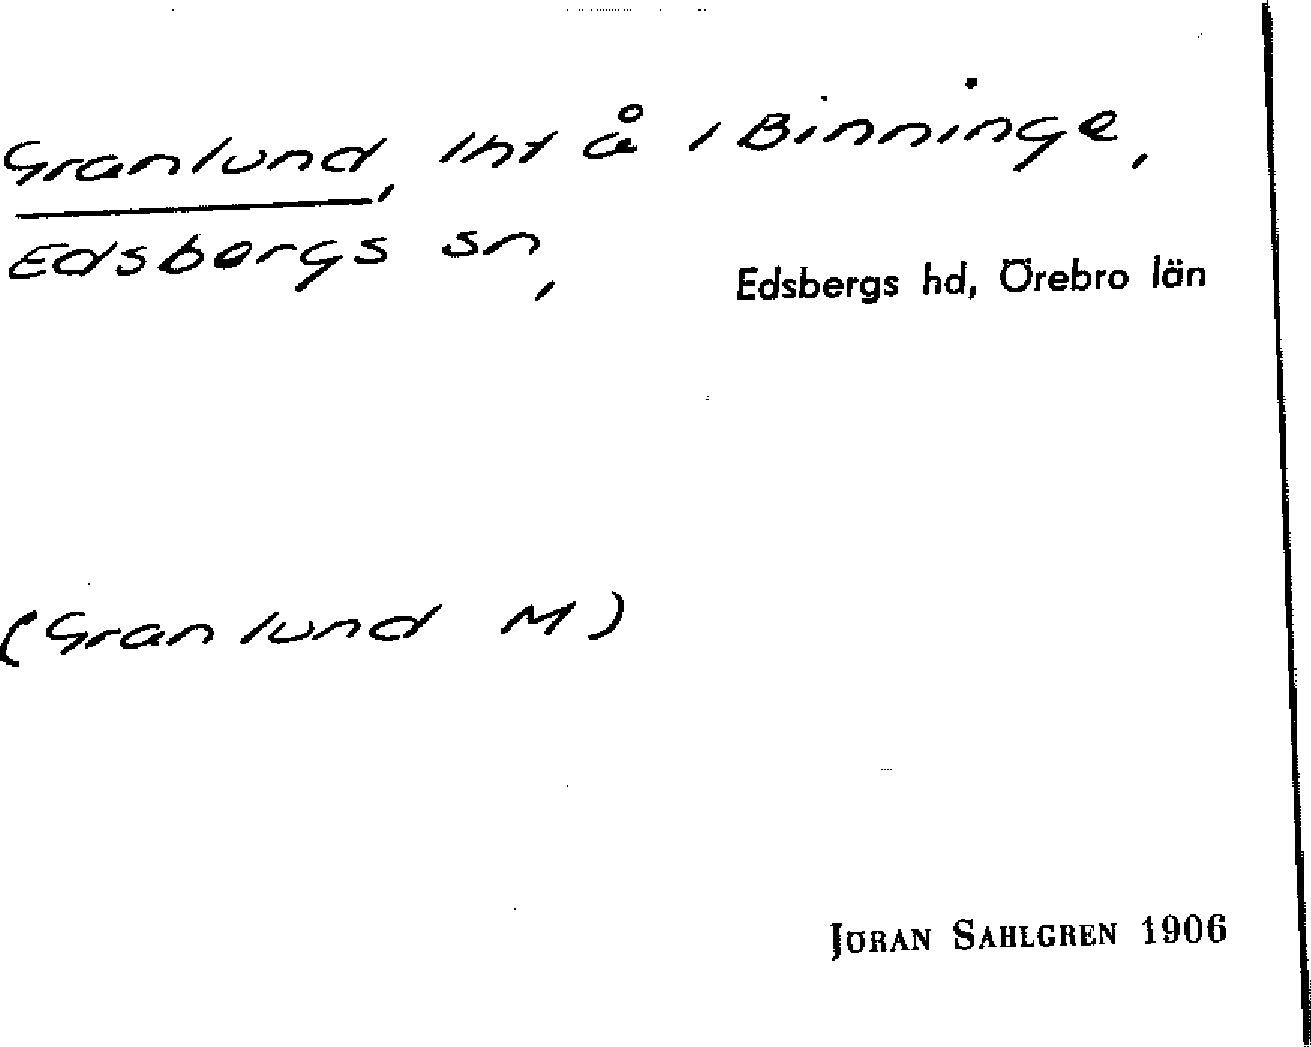 Granlund, lht å i Binninge,
Edsbergs sn,
Edsbergs hd, Örebro län
(Granlund M)
JÖRAN SAHLGREN 1906